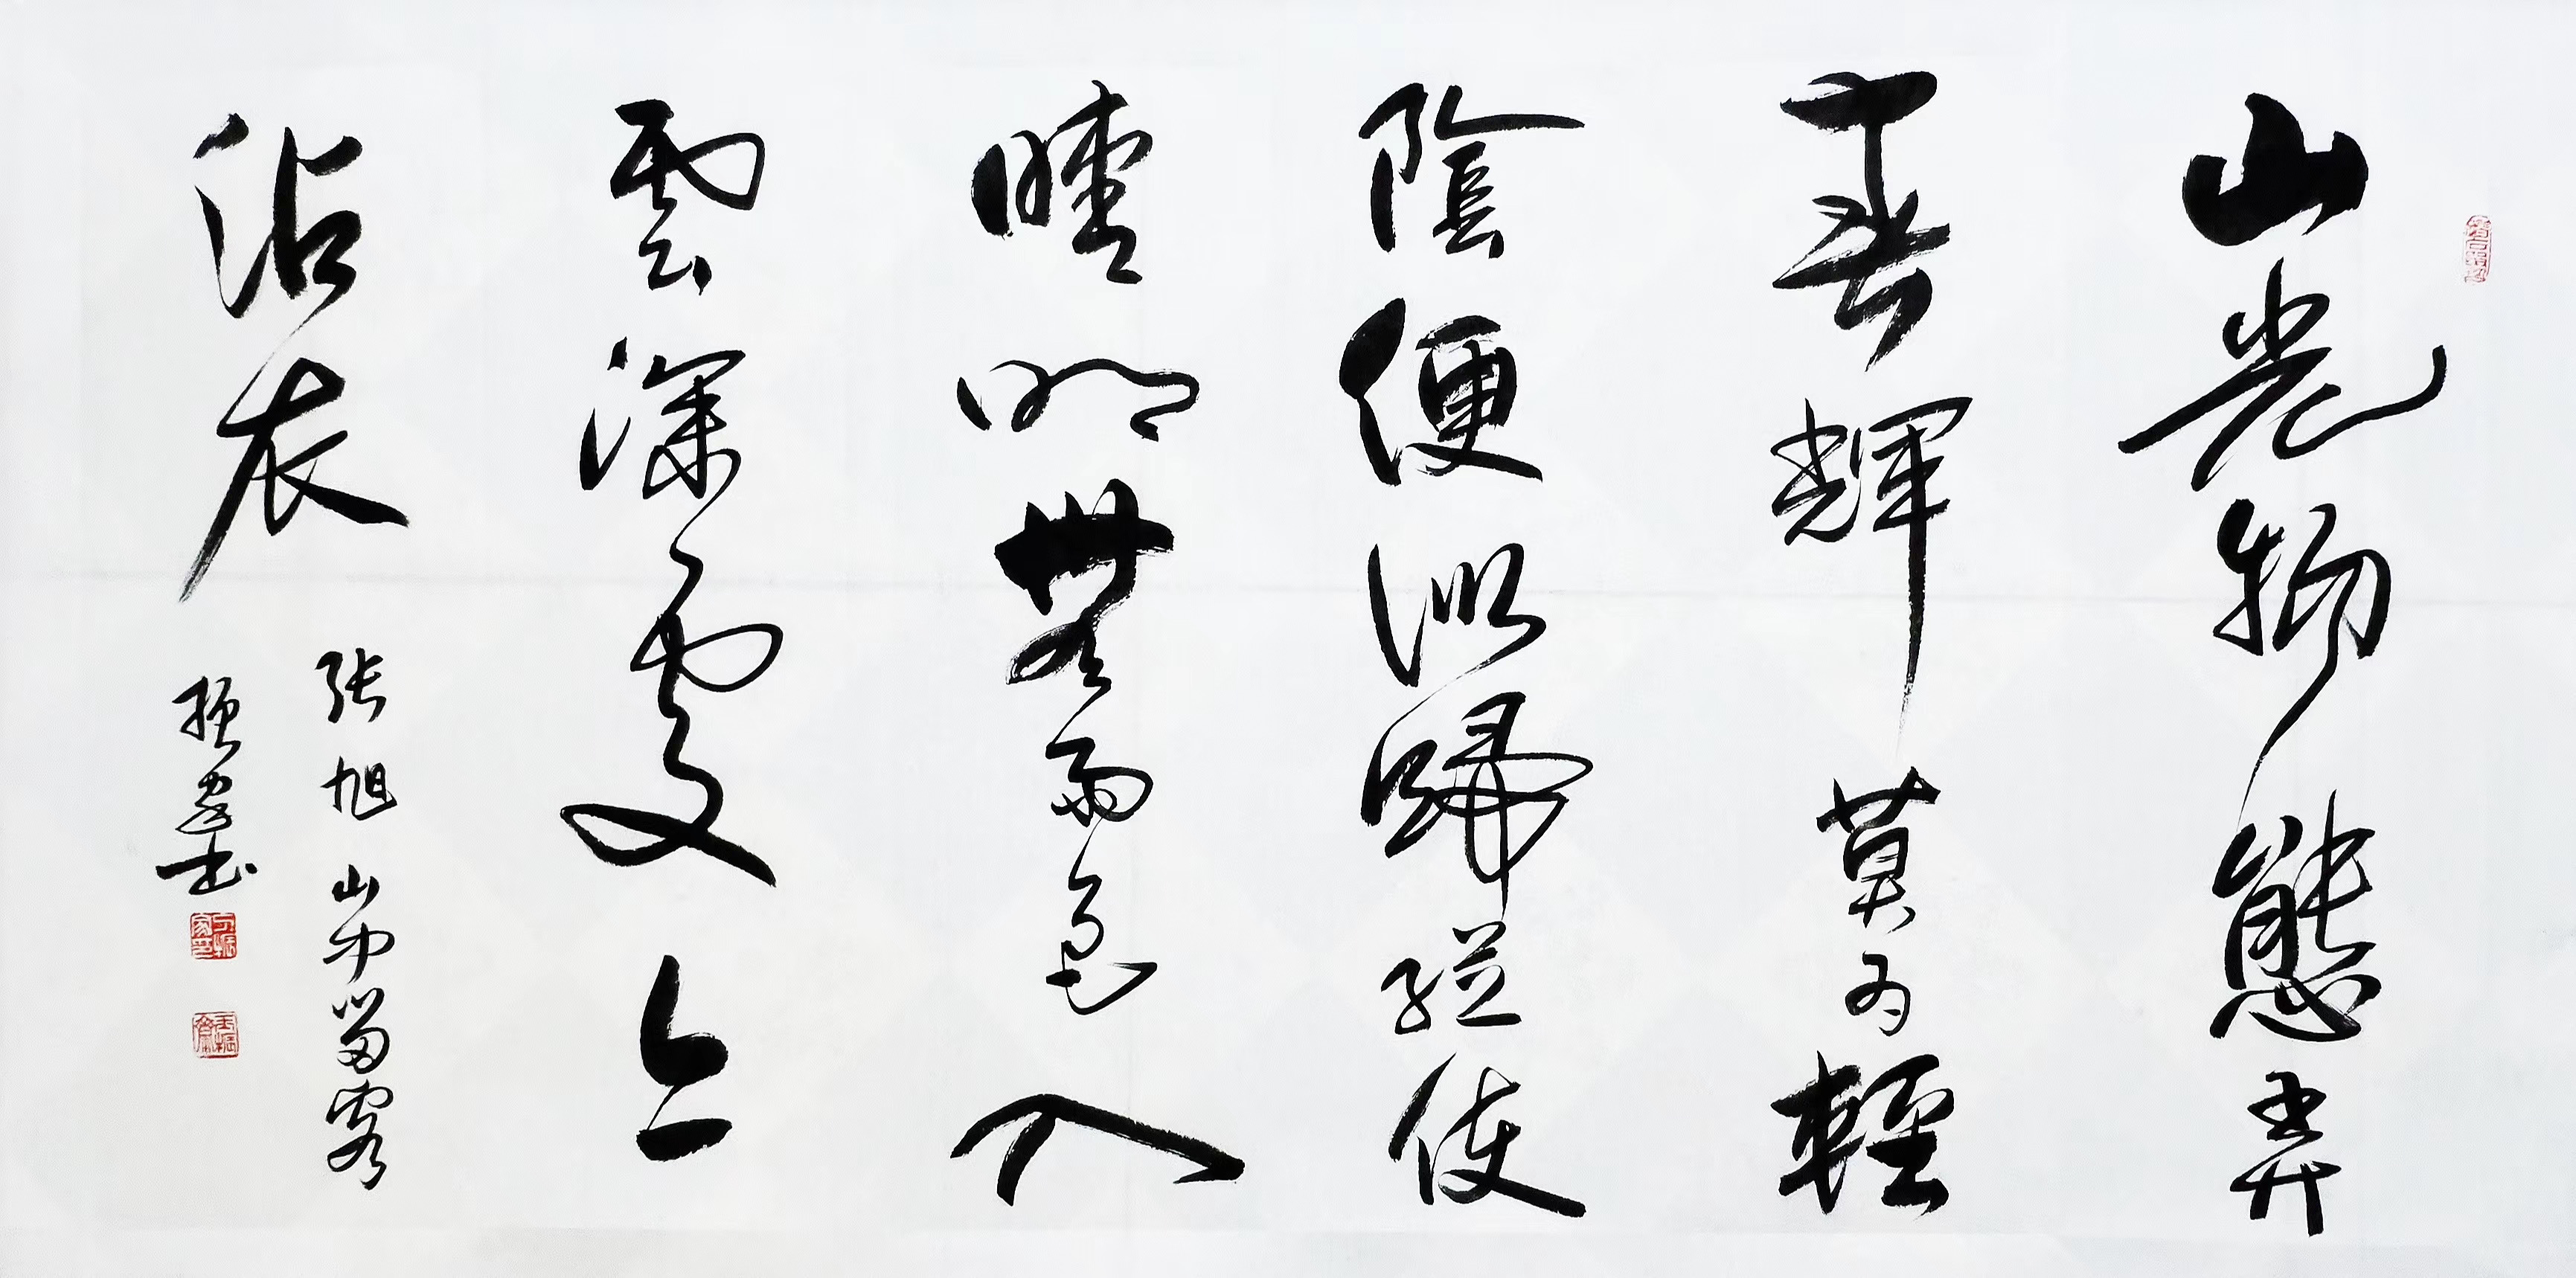 山光物態弄
春輝莫为輕
陰便拟歸縱使
晴明無雨色入
雲深處亦
沾衣
張旭山中留客
振家书